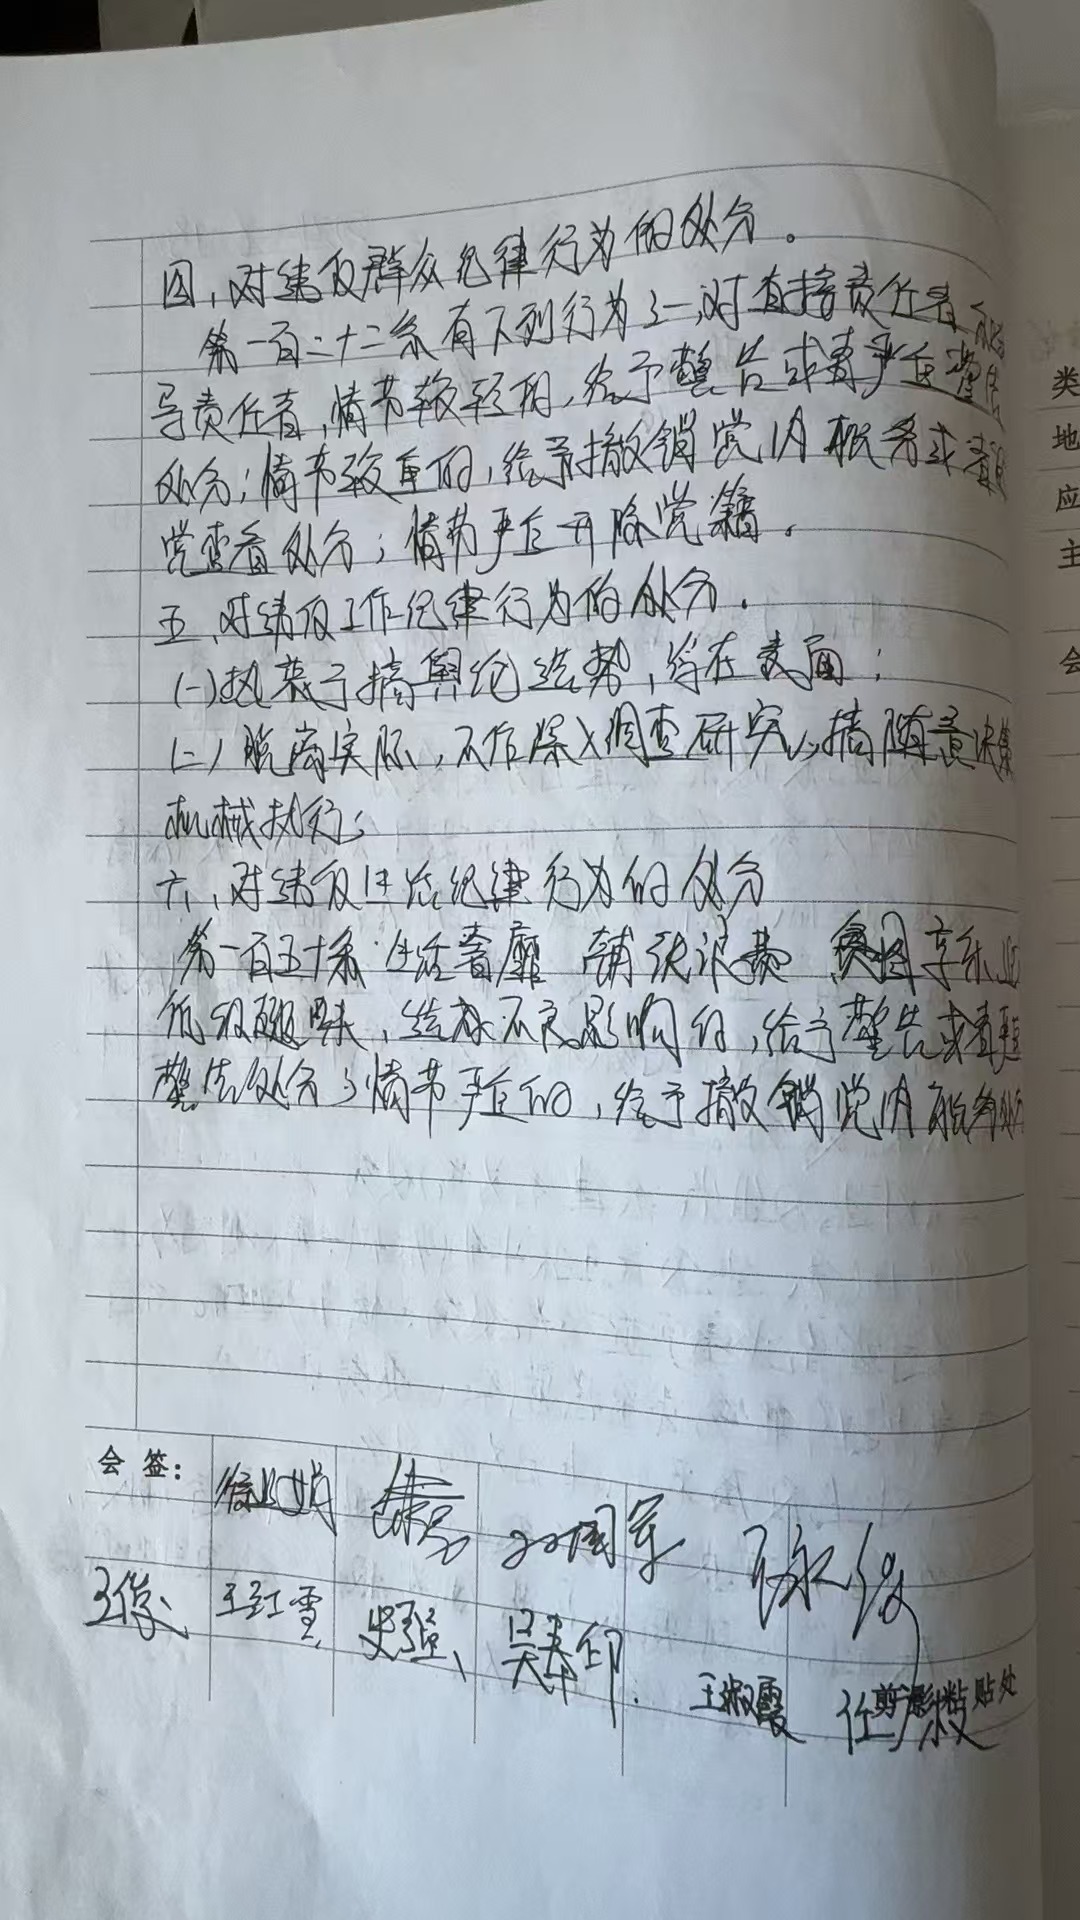 四、对违反群众纪律行为的处分。
第一百二十二条有下列行为之一,对直接责任者和领
导责任者,情节较轻的,给予警告或者严重警告
处分;情节较重的,给予撤销党内职务或者留
党查看处分;情节严重开除党籍。
五、对违反工作纪律行为的处分.
(一)热衷于搞舆论造势,浮在表面;
(二)脱离实际,不作深入调查研究,搞随意决策
机械执行;
六、对违反生活纪律行为的处分
第一百五十条 生活奢靡 铺张浪费 贪图享乐 追求
低级趣味,造成不良影响的,给予警告或者严重
警告处分;情节严重的,给予撤销党内职务处分
会 签:
王俊 王红雪 史强 吴奉印
王淑霞 剪影粘贴处
类
地
应
主
会